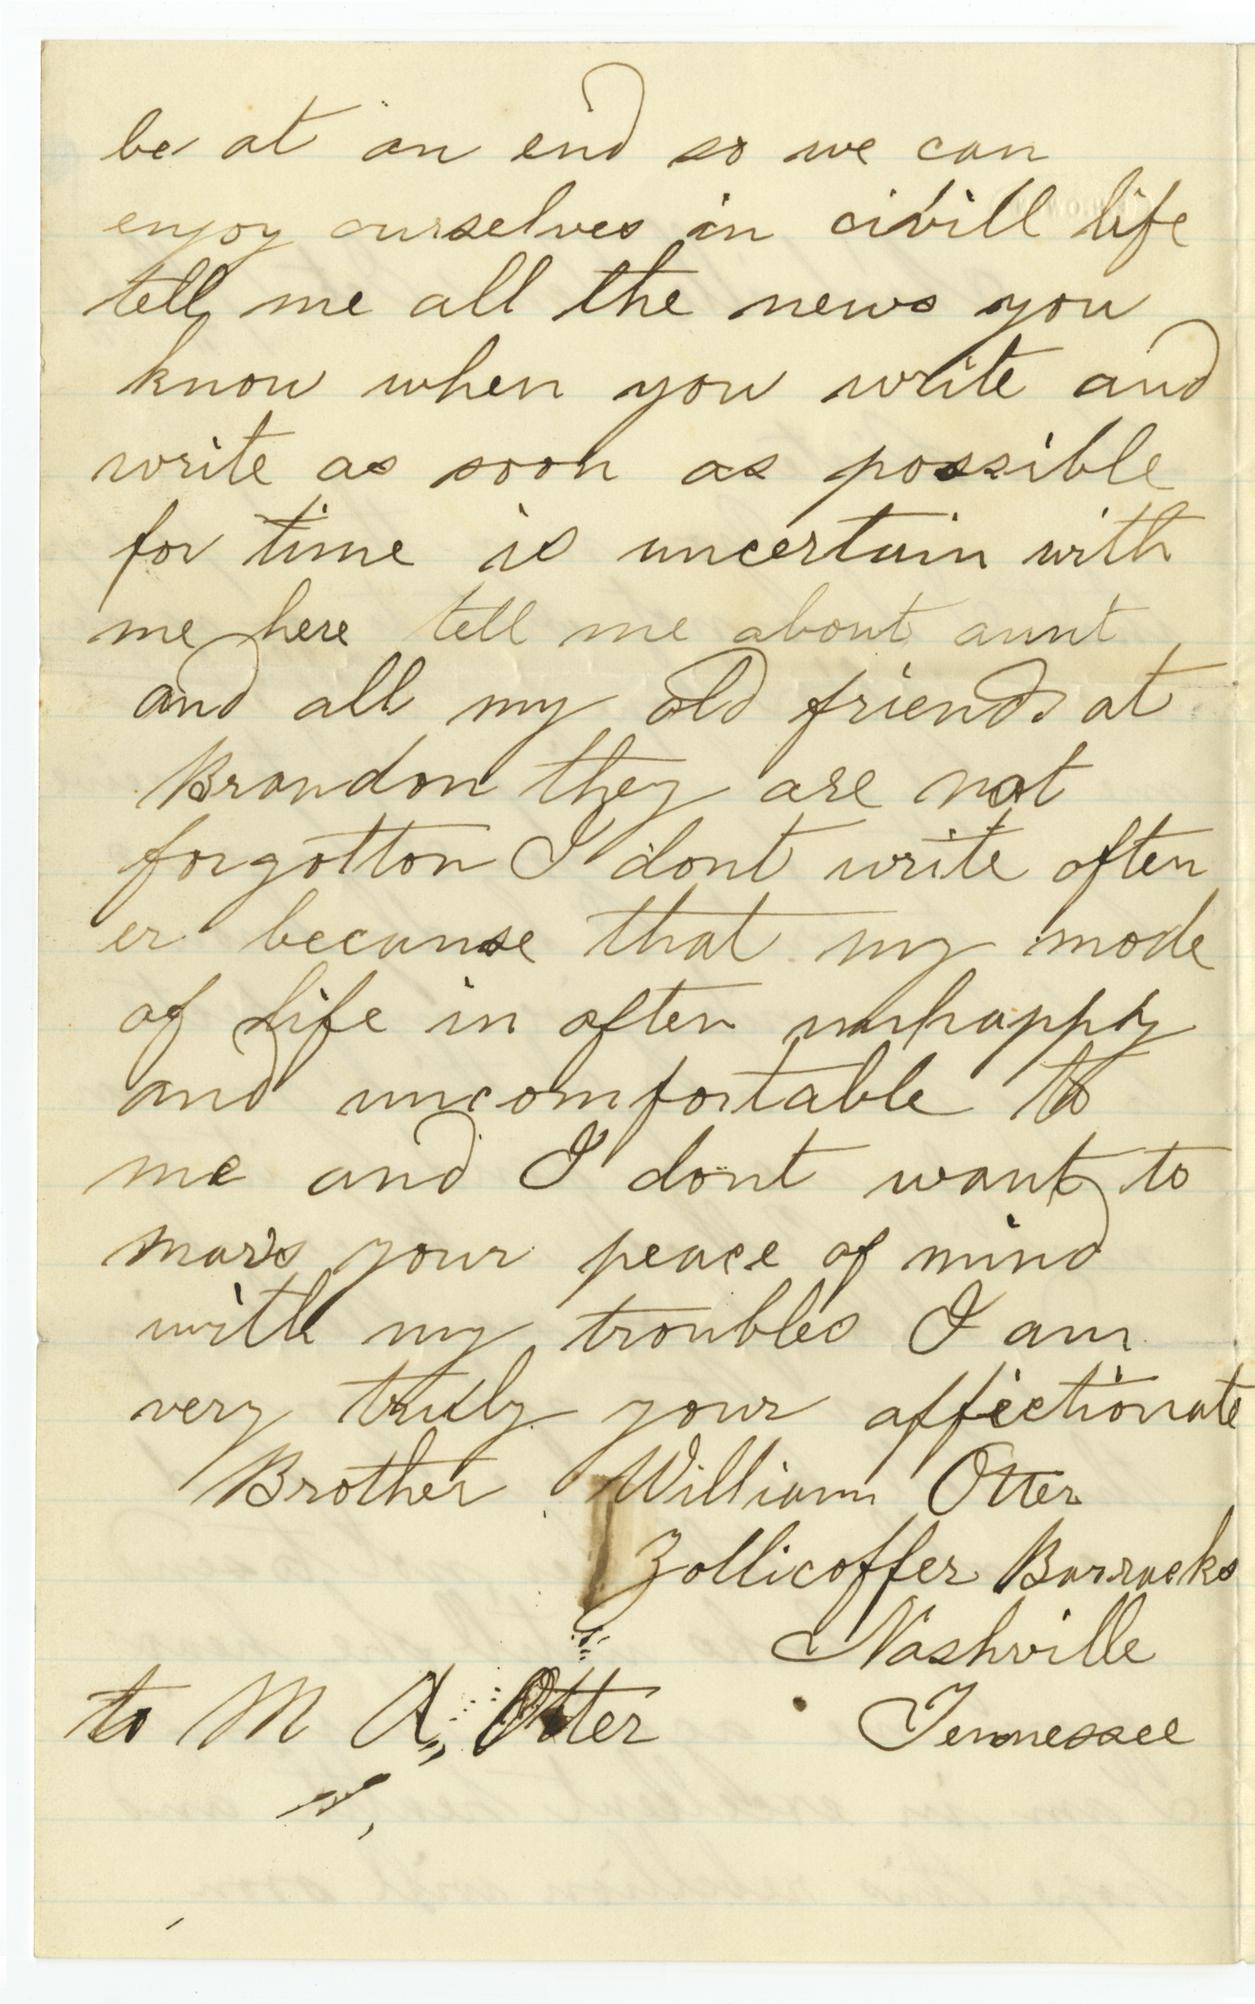 be at an end so we can
enjoy ourselves in civill life
tell me all the news you
know when you write and
write as soon as possible
for time is uncertain with
me here tell me about aunt
and all my old friends at
Brandon they are not
forgotton I dont write often
er because that my mode
of life in often unhappy
and uncomfortable to
me and I dont want to
mars your peace of mind
with my troubles I am
very truly your affectionate
Brother William Otter
Zollicoffer Barracks
Nashville
to M A, Otter Tennessee